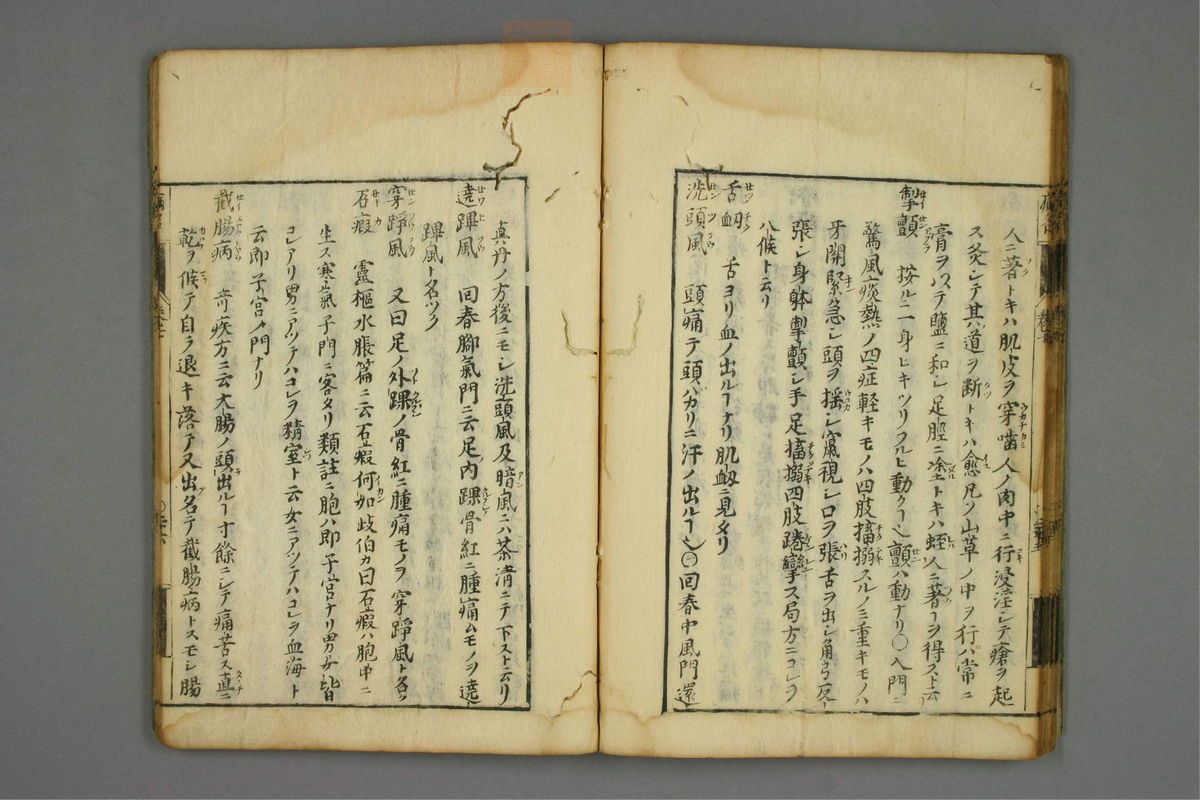 人ニ著トキハ肌皮ヲ穿嚙人ノ肉中ニ行浸淫シテ瘡ヲ起
ス灸シテ其道ヲ断トキハ愈凡ソ山草ノ中ヲ行バ常ニ
膏ヲ以テ鹽ニ和シ足脛ニ塗トキハ蛭人ニ著ヿヲ得ズト云
掣顫 按ルニ身ヒキツリフルヒ動クヿ也顫ハ動ナリ〇入門ニ
驚風痰熱ノ四症軽キモノハ四肢搐搦スルノミ重キモノハ
牙關緊急シ頭ヲ揺シ竄視シ口ヲ張舌ヲ出シ角弓反
張シ身躰掣顫シ手足搐搦四肢踡攣ス局方ニコレヲ
八候ト云リ
舌衄 舌ヨリ血ノ出ルヿナリ肌衄ニ見タリ
洗頭風 頭痛テ頭バカリニ汗ノ出ルヿ也〇回春中風門還
真丹ノ方後ニモシ洗頭風及暗風ニハ茶清ニテ下スト云リ
遶踝風 回春脚氣門ニ云足内踝骨紅ニ腫痛ムモノヲ遶
踝風ト名ヅク
穿踭風 又曰足ノ外踝ノ骨紅ニ腫痛モノヲ穿踭風ト名ヅ
石瘕 靈樞水脹篇ニ云石瘕何如歧伯カ曰石瘕ハ胞中ニ
生ズ寒氣子門ニ客タリ類註ニ胞ハ即子宮ナリ男女皆
コレアリ男ニアツテハコレヲ精室ト云女ニアツテハコレヲ血海ト
云即子宮ノ門ナリ
截腸病 奇疾方ニ云大腸ノ頭出ルヿ寸餘ニシテ痛苦ス直ニ
乾ヲ候テ自ラ退キ落テ又出名テ截腸病トスモシ腸